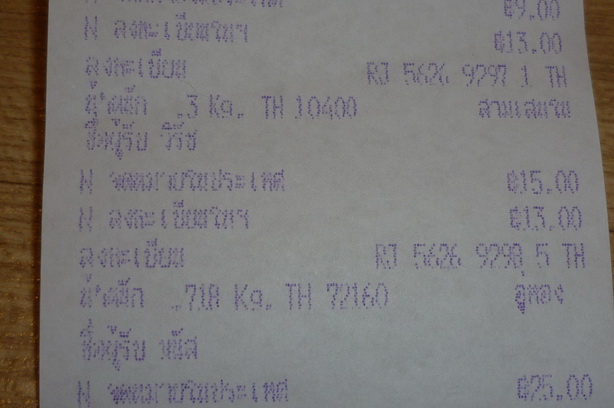 N จดหมายในประเทศ ฿9.00
N ลงทะเบียนในฯ ฿13.00
ลงทะเบียน RJ 5626 9297 1 TH
น้ำหนัก .3 Kg. TH 10400 สามเสนใน
ชื่อผู้รับ วิรัช
N จดหมายในประเทศ ฿15.00
N ลงทะเบียนในฯ ฿13.00
ลงทะเบียน RJ 5626 9298 5 TH
น้ำหนัก .718 Kg. TH 72160 อู่ทอง
ชื่อผู้รับ
N จดหมายในประเทศ ฿25.00